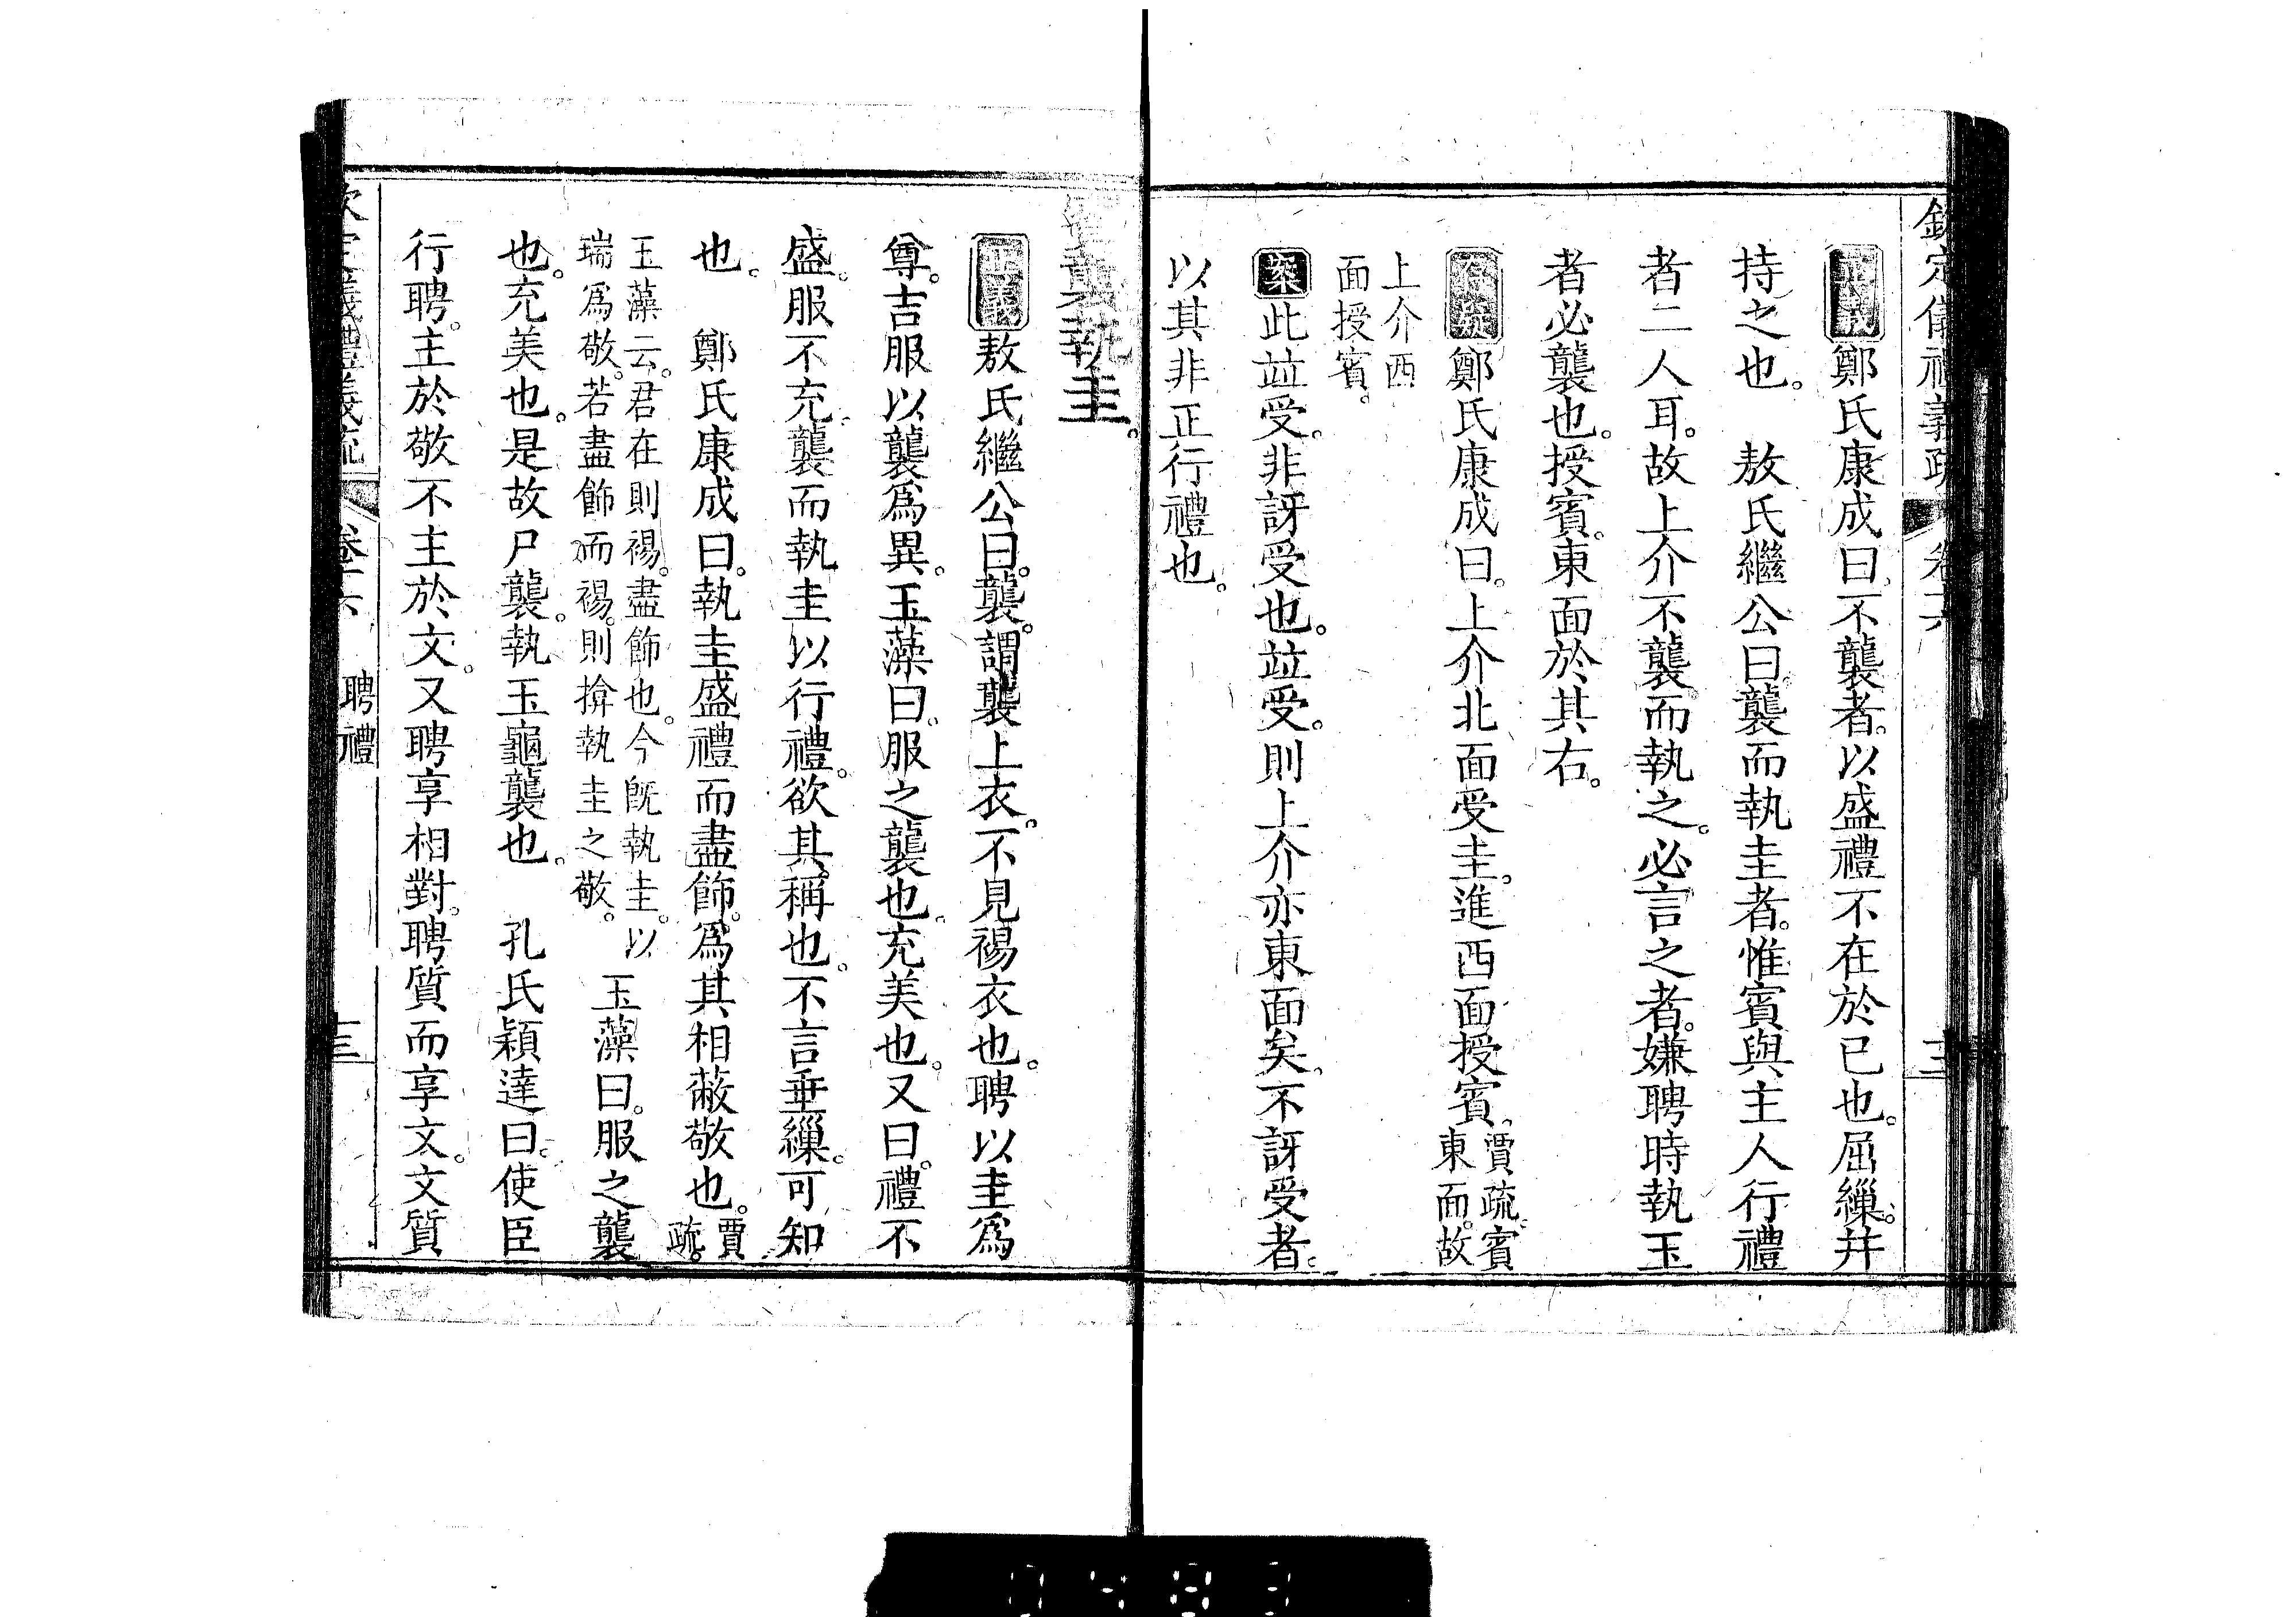 欽定儀禮義疏 卷十六
正義鄭氏康成曰不襲者。以盛禮不在於己也。屈繅。并
持之也。 敖氏繼公曰。襲而執圭者。惟賓與主人行禮
者二人耳。故上介不襲。而執之。必言之者。嫌聘時執玉
者必襲也。授賓。東面於其右。
存疑鄭氏康成曰。上介北面受圭。進西面授賓。賈疏。賓東面。故
上介西面授賓。
案此竝受。非訝受也。竝受。則上介亦東面矣。不訝受者。
以其非正行禮也。
賓襲執圭。
正義敖氏繼公曰。襲。謂襲上衣。不見裼衣也。聘以圭爲
尊。吉服以襲爲異。玉藻曰。服之襲也。充美也。又曰。禮不
盛。服不充。襲而執圭以行禮。欲其稱也。不言垂繅。可知
也。 鄭氏康成曰。執圭盛禮。而盡飾。爲其相蔽敬也。賈疏。
玉藻云。君在則裼。盡飾也。今旣執圭。以瑞爲敬。若盡飾而裼。則揜執圭之敬。 玉藻曰。服之襲
也。充美也。是故尸襲。執玉龜襲也。 孔氏穎達曰。使臣
行聘。主於敬。不主於文。又聘享相對。聘質而享文。文質
欽定儀禮義疏 卷十六 聘禮